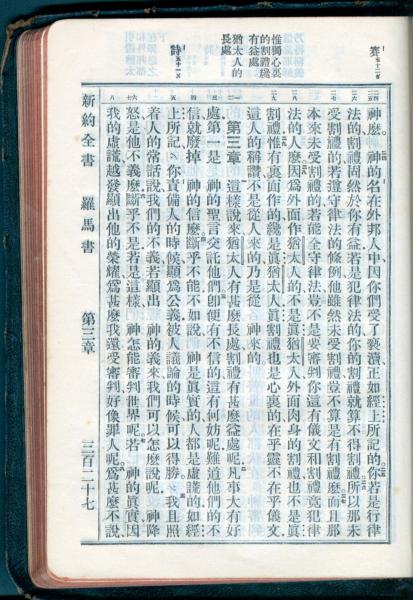 惟獨心裏
的割禮纔
有益處
猶太人的
長處
神麼。 神的名在外邦人中因你們受了褻瀆正如經上所記的你若是行律
法的割禮固然於你有益若是犯律法的你的割禮就算不得割禮所以那未
受割禮的若遵守律法的條例他雖然未受割禮豈不算是有割禮麼而且那
本來未受割禮的若能全守律法豈不是要審判你這有儀文和割禮竟犯律
法的人麼因爲外面作猶太人的不是眞猶太人外面肉身的割禮也不是眞
割禮惟有裏面作的纔是眞猶太人眞割禮也是心裏的在乎靈不在乎儀文
這人的稱讚不是從人來的乃是從 神來的
第三章 這樣說來猶太人有甚麼長處割禮有甚麼益處呢凡事大有好
處第一是 神的聖言交託他們卽便有不信的這有何妨呢難道他們的不
信就廢掉 神的信麼斷乎不能不如說 神是眞實的人都是虛謊的如經
上所記 你責備人的時候顯爲公義被人議論的時候可以得勝 我且照
着人的常話說我們的不義若顯出 神的義來我們可以怎麼說呢 神降
怒是他不義麼斷乎不是若是這樣 神怎能審判世界呢若 神的眞實因
我的虛謊越發顯出他的榮耀爲甚麼我還受審判好像罪人呢爲甚麼不說
新約全書 羅馬書 第三章 三百二十七